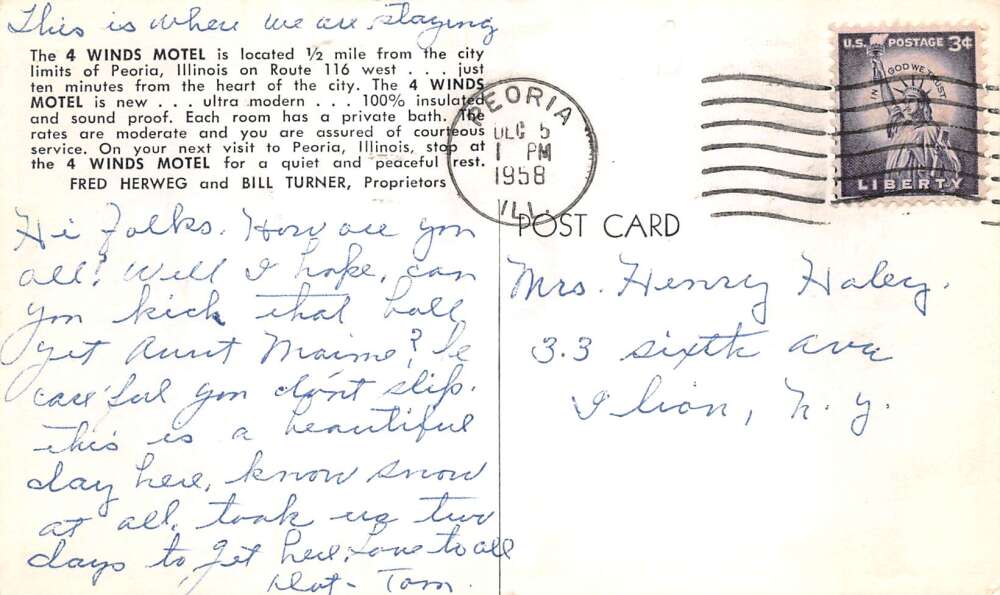 This is where we are staying
The 4 WINDS MOTEL is located ½ mile from the city
limits of Peoria, Illinois on Route 116 west . . . just
ten minutes from the heart of the city. The 4 WINDS
MOTEL is new . . . ultra modern . . . 100% insulated
and sound proof. Each room has a private bath. The
rates are moderate and you are assured of courteous
service. On your next visit to Peoria, Illinois, stop at
the 4 WINDS MOTEL for a quiet and peaceful rest.
FRED HERWEG and BILL TURNER, Proprietors
Hi Folks. How are you
all? Well I hope, can
you kick that ball
yet Aunt Maime? Be
careful you don't slip.
this is a beautiful
day here, know snow
at all. took us two
days to get here. Love to all
Dot - Tom.
PEORIA
DEC 5
1 PM
1958
ILL.
U.S. POSTAGE 3¢
IN GOD WE TRUST
LIBERTY
POST CARD
Mrs. Henry Haley.
33 sixth ave
Ilion, N.Y.